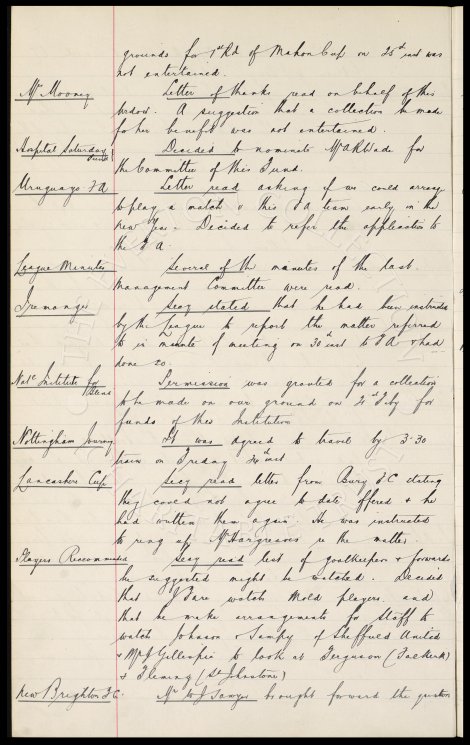 grounds for 1st Rd of Mahon Cup on 25th inst was
not entertained.
Mr Mooney Letter of thanks read on behalf of this
widow. A suggestion that a collection be made
for her benefit was not entertained.
Hospital Saturday Fund Decided to nominate Mr A R Wade for
the Committee of this Fund.
Uruguayo F A Letter read asking if we could arrange
to play a match v this F A team early in the
new Year. Decided to refer the application to
the F A.
League Minutes Several of the minutes of the last
Management Committee were read.
Iremonger Secy stated that he had been instructed
by the League to report the matter referred
to in minute of meeting on 30th inst to F A & had
done so.
Natl Institute for Blind Permission was granted for a collection
to be made on our ground on 21st Feby for
funds of this Institution
Nottingham Journey It was agreed to travel by 3.30
train on Friday inst
Lancashire Cup Secy read letter from Bury F C stating
they could not agree to date offered & he
had written them again. He was instructed
to ring up Mr Hargreaves re the matter.
Players Recommended Secy read list of goalkeepers & forwards
he suggested might be watched. Decided
that J Fare watch Mold players and
that he make arrangements for Staff to
watch Johnson & of Sheffield United
& Mr J Gillespie to look at Ferguson (Falkirk)
& Fleming (St Johnstone)
New Brighton F C. Mr W J Sawyer brought forward the question